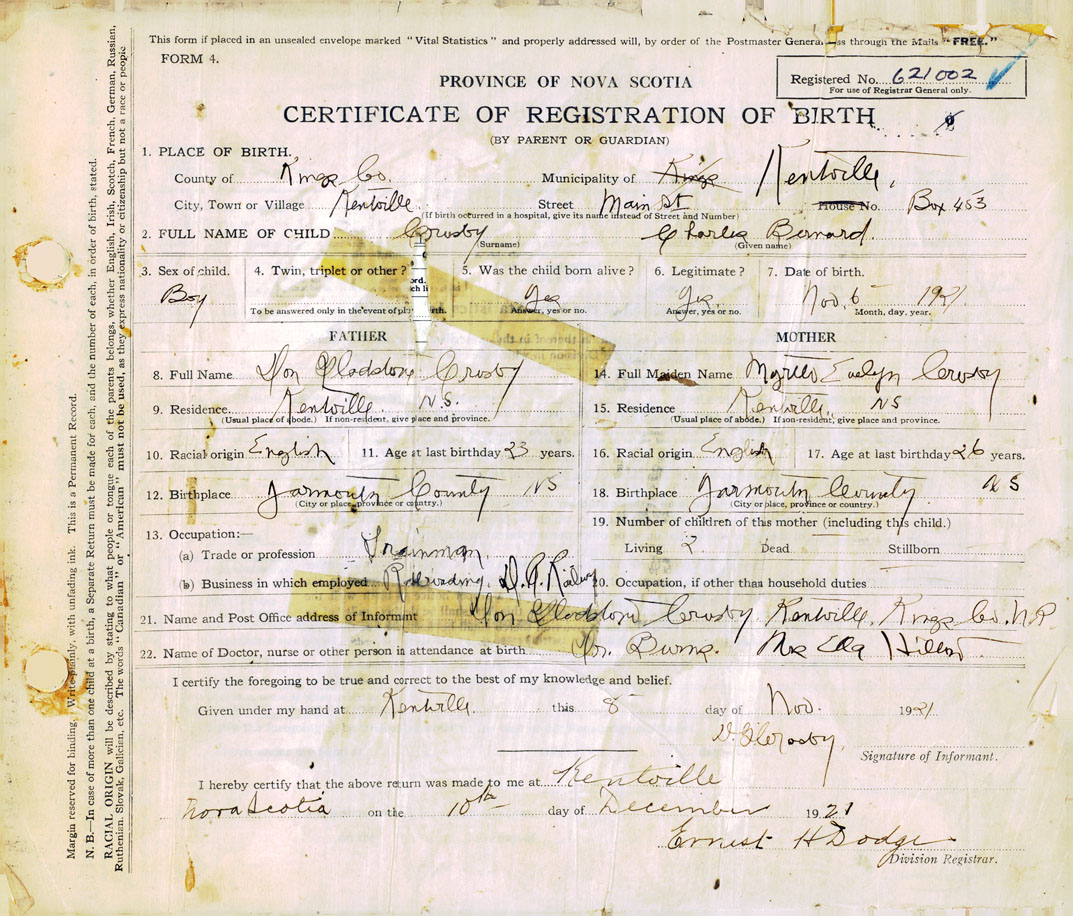 This form if placed in an unsealed envelope marked "Vital Statistics" and properly addressed will, by order of the Postmaster General ss through the Mails "FREE."
FORM 4.
PROVINCE OF NOVA SCOTIA
Registered No. 621002
For use of Registrar General only.
CERTIFICATE OF REGISTRATION OF BIRTH
(BY PARENT OR GUARDIAN)
1. PLACE OF BIRTH.
County of Kings Co. Municipality of Kings Kentville,
City, Town or Village Kentville Street Main St House No. Box 453
(If birth occurred in a hospital, give its name instead of Street and Number)
2. FULL NAME OF CHILD Crosby Charles Bernard.
(Surname) (Given name)
3. Sex of child. 4. Twin, triplet or other? 5. Was the child born alive? 6. Legitimate? 7. Date of birth.
Boy Yes Yes Nov. 6 1921
To be answered only in the event of pl rth. Answer, yes or no. Answer, yes or no. Month, day, year.
FATHER MOTHER
8. Full Name Don Gladstone Crosby 14. Full Maiden Name Evelyn Crosby
9. Residence Kentville N.S. 15. Residence Kentville NS
(Usual place of abode.) If non-resident, give place and province. (Usual place of abode.) If non-resident, give place and province.
10. Racial origin English 11. Age at last birthday 23 years. 16. Racial origin English 17. Age at last birthday 26 years.
12. Birthplace Yarmouth County NS 18. Birthplace Yarmouth County NS
(City or place, province or country.) (City or place, province or country.)
13. Occupation:— 19. Number of children of this mother (including this child.)
(a) Trade or profession Trainman Living 2 Dead Stillborn
(b) Business in which employed Railroading, D.A. Railway 20. Occupation, if other than household duties
21. Name and Post Office address of Informant Don Gladstone Crosby Kentville, Kings Co. N.S.
22. Name of Doctor, nurse or other person in attendance at birth Dr. Burns. Mrs Ella
I certify the foregoing to be true and correct to the best of my knowledge and belief.
Given under my hand at Kentville this 8 day of Nov. 1921
D. G. Crosby
Signature of Informant.
I hereby certify that the above return was made to me at Kentville
Nova Scotia on the 10th day of December 1921
Ernest H Dodge
Division Registrar.
Margin reserved for binding. Write plainly, with unfading ink. This is a Permanent Record.
N. B.—In case of more than one child at a birth, a Separate Return must be made for each, and the number of each, in order of birth, stated.
RACIAL ORIGIN will be described by stating to what people or tongue each of the parents belongs, whether English, Irish, Scotch, French, German, Russian,
Ruthenian, Slovak, Galician, etc. The words "Canadian" or "American" must not be used, as they express nationality or citizenship but not a race or people